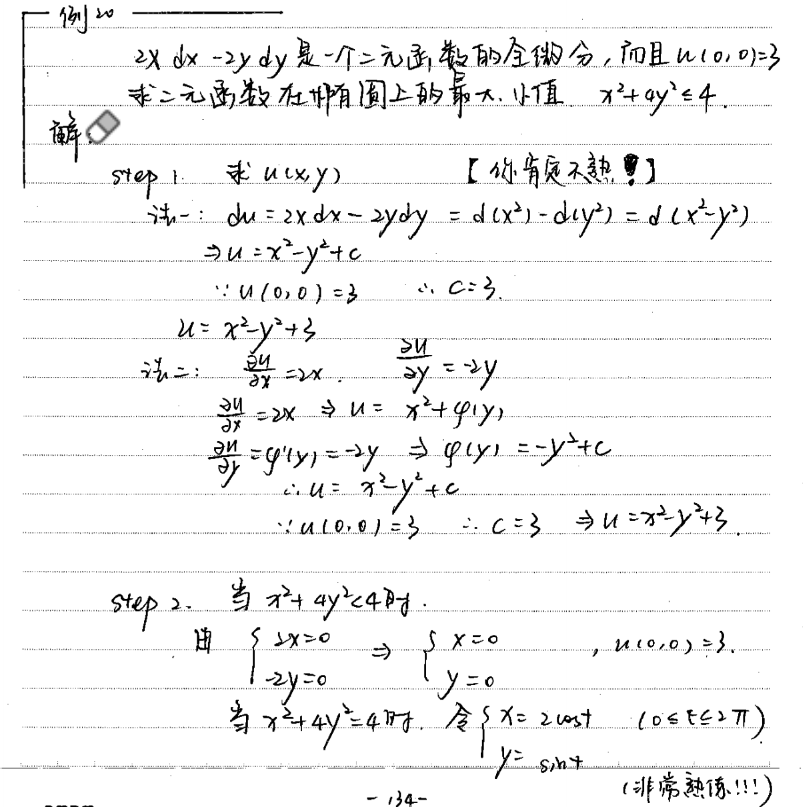 例20
2x dx - 2y dy 是一个二元函数的全微分, 而且 u(0,0)=3
求二元函数在椭圆上的最大.小值 x²+4y²≤4.
解:
step 1. 求 u(x,y) 【你肯定不熟!】
法一: du = 2x dx - 2y dy = d(x²) - d(y²) = d(x²-y²)
⇒ u = x²-y²+c
∵ u(0,0)=3 ∴ c=3.
u = x²-y²+3
法二: ∂u/∂x = 2x. ∂u/∂y = -2y
∂u/∂x = 2x ⇒ u = x²+φ(y)
∂u/∂y = φ'(y) = -2y ⇒ φ(y) = -y²+c
∴ u = x²-y²+c
∵ u(0,0)=3 ∴ c=3 ⇒ u = x²-y²+3.
step 2. 当 x²+4y²<4时.
由 { 2x=0 -2y=0 ⇒ { x=0 y=0 , u(0,0)=3.
当 x²+4y²=4时. 令 { x=2cost y=sint (0≤t≤2π)
(非常熟练!!!)
- 134 -